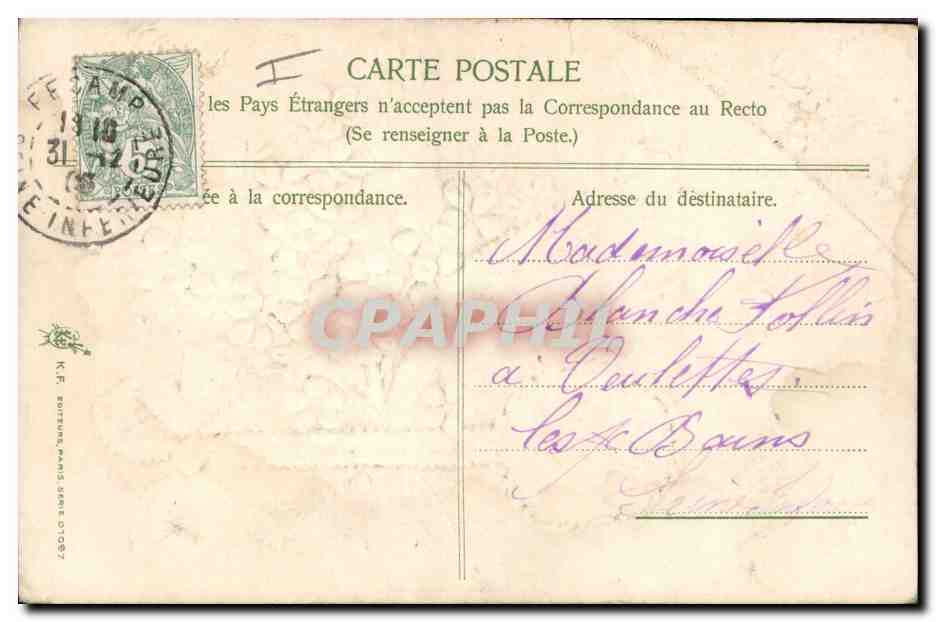 CARTE POSTALE
les Pays Étrangers n'acceptent pas la Correspondance au Recto
(Se renseigner à la Poste.)
ée à la correspondance.
Adresse du destinataire.
FECAMP
1910
31 12
INFERIEURE
Mademoiselle
Blanche
à Veulettes
les Bains
CPAPHIL
K.F. EDITEURS, PARIS, SERIE 01067